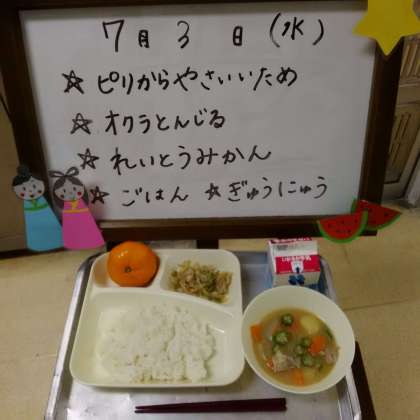 7月3日(水)
☆ピリからやさいいため
☆オクラとんじる
☆れいとうみかん
☆ごはん ☆ぎゅうにゅう